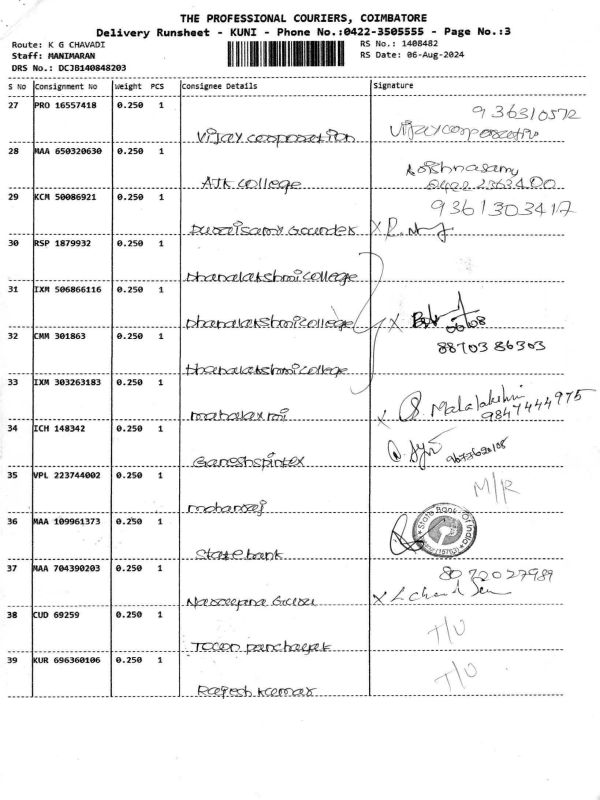 THE PROFESSIONAL COURIERS, COIMBATORE
Delivery Runsheet - KUNI - Phone No.:0422-3505555 - Page No.:3
Route: K G CHAVADI
Staff: MANIMARAN
DRS No.: DCJB140848203
RS No.: 1408482
RS Date: 06-Aug-2024
S No Consignment No Weight PCS Consignee Details Signature
27 PRO 16557418 0.250 1
Vijay corporation
28 MAA 650320630 0.250 1
AJK college
29 KCM 50086921 0.250 1
Duraisamy Gounder X
30 RSP 1879932 0.250 1
Dhanalakshmi college
31 IXM 506866116 0.250 1
Dhanalakshmi college X 06/08
32 CMM 301863 0.250 1 8870386303
Dhanalakshmi college
33 IXM 303263183 0.250 1
mahalaxmi X
9847444975
34 ICH 148342 0.250 1
Ganeshspintex
35 VPL 223744002 0.250 1 M/R
36 MAA 109961373 0.250 1 State Bank Of India
State bank
37 MAA 704390203 0.250 1 8072027989
X
38 CUD 69259 0.250 1 T/U
Town panchayat
39 KUR 696360106 0.250 1 T/U
Rajesh kumar